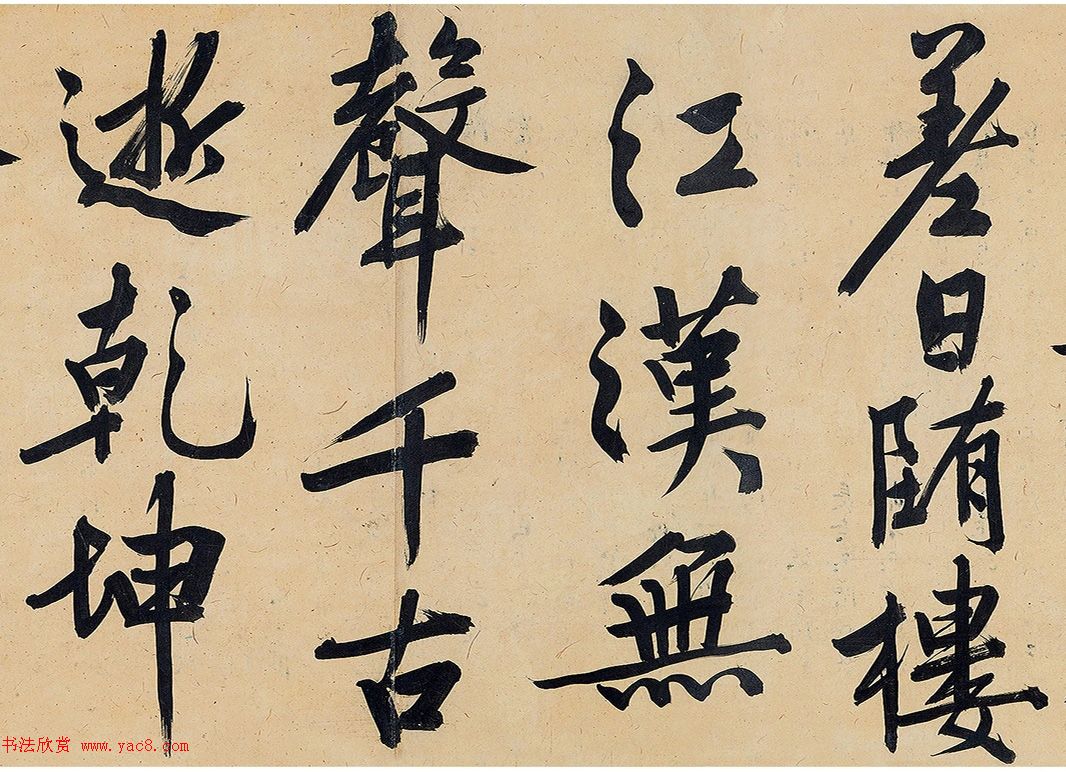 差日隋樓
江漢無
聲千古
逝乾坤
书法欣赏 www.yac8.com